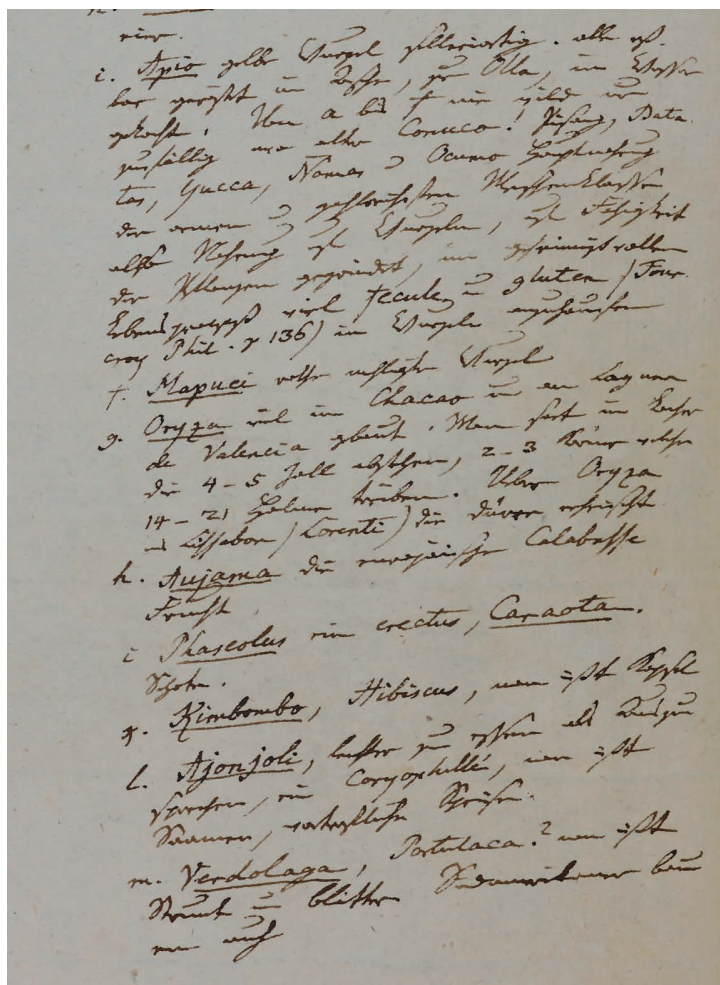 i. Apio gelbe Wurzel sellerieartig. alle eß-
bar geröstet im Kaffe, zur Olla, im Wasser
gekocht. Von a bis f nur wild
zufällig alte Conuco! Bata-
tas, Yucca, Ñames u Ocumo Hauptnahrung
der armen u zahlreichsten Menschenklassen
alle Nahrung ist Wurzeln, ist Fähigkeit
der Pflanzen gegründet, im geheimnißvollen
Lebensprozeß viel fecule u gluten (Four-
croy Phil. p 136) in Wurzeln anzuhäufen
f. Mapuei rothe Wurzel
g. Oryza viel im Chacao u an Laguna
de Valencia gebaut. Man in Löcher
die 4 – 5 Zoll abstehen, 2 – 3 Körner welche
14 – 21 Halme treiben. Ueber Oryza
Lissabon (Lorenti) die Dürre
h. Aujama die europäische Calabasse
Frucht
i Phaseolus ein erectus, Caraota.
Schote.
k. Kimbombo, Hibiscus, man ißt Kapsel
l. Ajonjoli, leichter zu essen als auszu-
sprechen, ein Caryophyllé, man ißt
Saamen, vortrefliche Speise.
m. Verdolaga, Portulaca? man ißt
Strunk u blätter Südamerikaner
auch